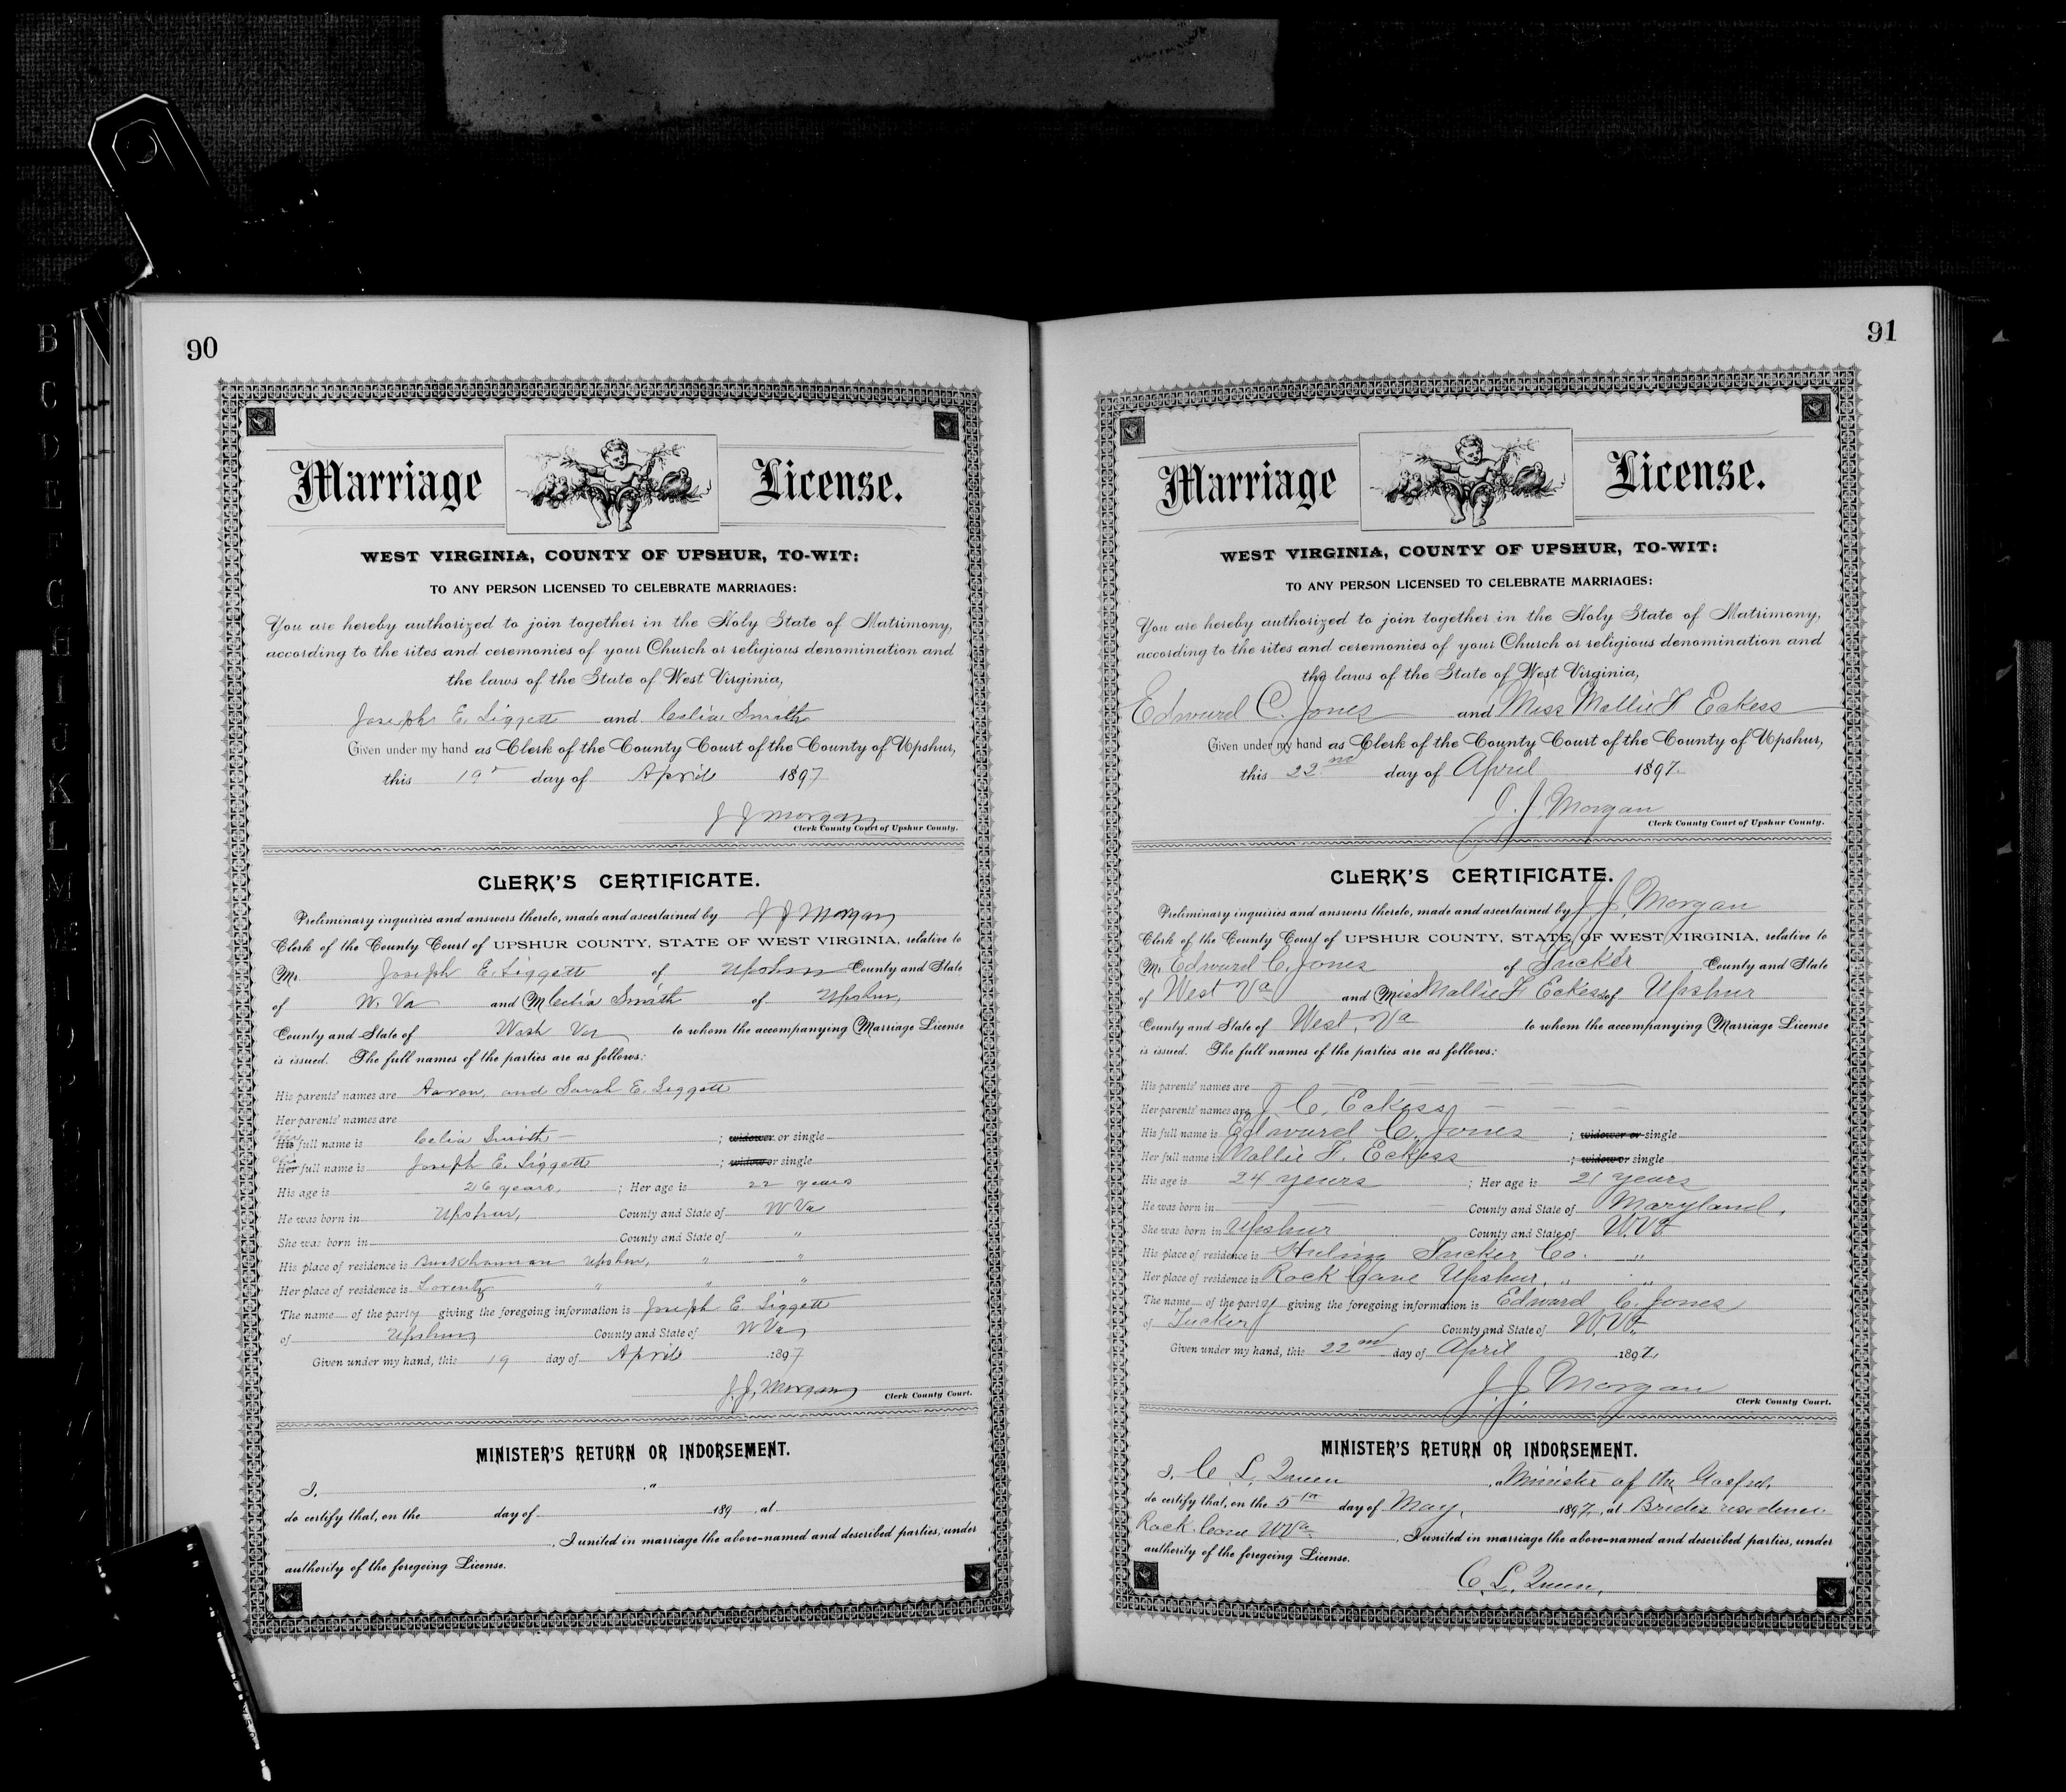 90
Marriage License.
WEST VIRGINIA, COUNTY OF UPSHUR, TO-WIT:
TO ANY PERSON LICENSED TO CELEBRATE MARRIAGES:
You are hereby authorized to join together in the Holy State of Matrimony,
according to the rites and ceremonies of your Church or religious denomination and
the laws of the State of West Virginia,
Joseph E. Liggett and Celia Smith
Given under my hand as Clerk of the County Court of the County of Upshur,
this 19 day of April 1897
J J Morgan
Clerk County Court of Upshur County.
CLERK'S CERTIFICATE.
Preliminary inquiries and answers thereto, made and ascertained by J J Morgan
Clerk of the County Court of UPSHUR COUNTY, STATE OF WEST VIRGINIA, relative to
Mr. Joseph E. Liggett of Upshur County and State
of W. Va and M Celia Smith of Upshur,
County and State of West Va to whom the accompanying Marriage License
is issued. The full names of the parties are as follows:
His parents' names are Aaron, and Sarah E. Liggett
Her parents' names are
His full name is Celia Smith ; widower or single
Her full name is Joseph E. Liggett ; widow or single
His age is 26 years, ; Her age is 22 years
He was born in Upshur, County and State of W Va
She was born in County and State of "
His place of residence is Buckhannon Upshur, " "
Her place of residence is Lorentz " " "
The name of the party giving the foregoing information is Joseph E. Liggett
of Upshur County and State of W Va
Given under my hand, this 19 day of April 1897
J. J. Morgan Clerk County Court.
MINISTER'S RETURN OR INDORSEMENT.
I, , a
do certify that, on the day of 189 , at
, I united in marriage the above-named and described parties, under
authority of the foregoing License.
91
Marriage License.
WEST VIRGINIA, COUNTY OF UPSHUR, TO-WIT:
TO ANY PERSON LICENSED TO CELEBRATE MARRIAGES:
You are hereby authorized to join together in the Holy State of Matrimony,
according to the rites and ceremonies of your Church or religious denomination and
the laws of the State of West Virginia,
Edward C. Jones and Miss Mollie F Eakess
Given under my hand as Clerk of the County Court of the County of Upshur,
this 22nd day of April 1897
J. J. Morgan
Clerk County Court of Upshur County.
CLERK'S CERTIFICATE.
Preliminary inquiries and answers thereto, made and ascertained by J. J. Morgan
Clerk of the County Court of UPSHUR COUNTY, STATE OF WEST VIRGINIA, relative to
Mr. Edward C. Jones of Tucker County and State
of West Va and Miss Mollie F Eakess of Upshur
County and State of West. Va to whom the accompanying Marriage License
is issued. The full names of the parties are as follows:
His parents' names are
Her parents' names are J. C. Eakess
His full name is Edward C. Jones ; widower or single
Her full name is Mollie F. Eckess ; widow or single
His age is 24 years ; Her age is 21 years
He was born in County and State of Maryland,
She was born in Upshur County and State of W. Va
His place of residence is Huling Tucker Co. "
Her place of residence is Rock Cave Upshur, " "
The name of the party giving the foregoing information is Edward C. Jones
of Tucker County and State of W. Va
Given under my hand, this 22nd day of April 1897,
J. J. Morgan
Clerk County Court.
MINISTER'S RETURN OR INDORSEMENT.
I, C. L. Queen , a Minister of the Gospel,
do certify that, on the 5th day of May, 1897, at Brides residence
Rock Cave W Va , I united in marriage the above-named and described parties, under
authority of the foregoing License.
C. L. Queen,